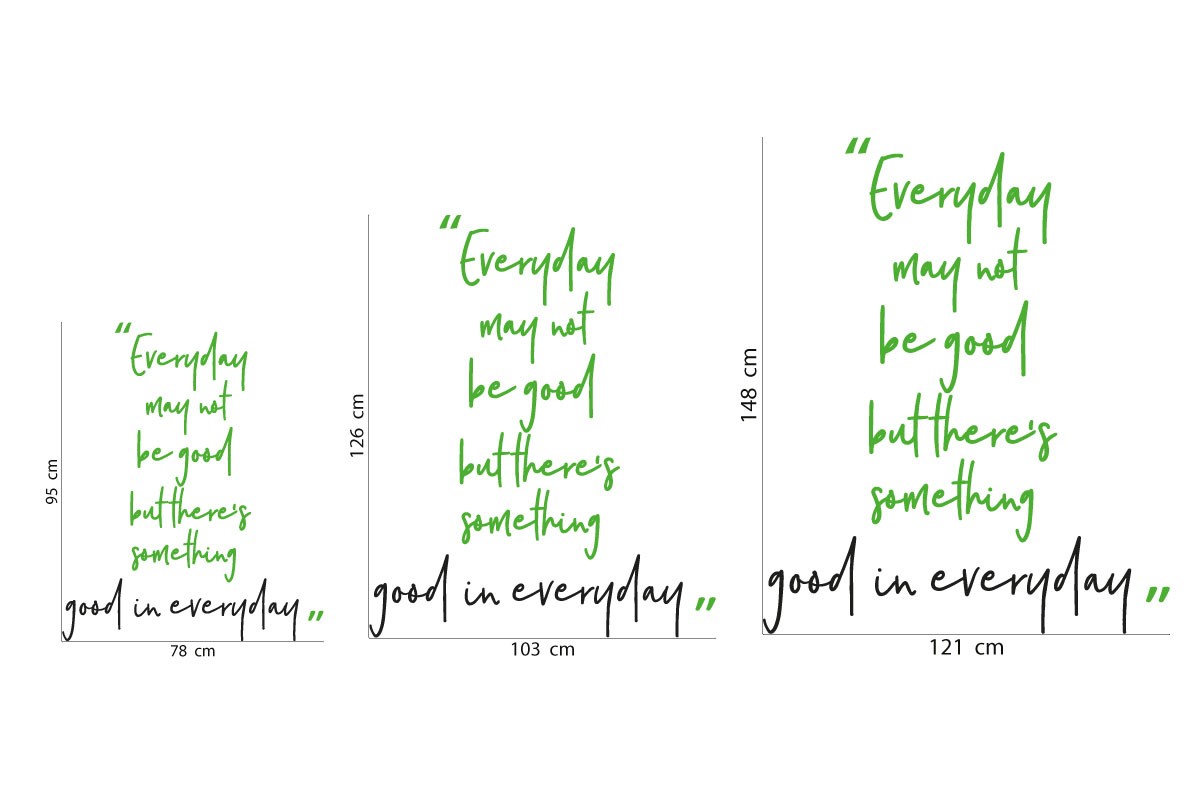 “Everyday
may not
be good
but there's
something
good in everyday”
95 cm
78 cm
“Everyday
may not
be good
but there's
something
good in everyday”
126 cm
103 cm
“Everyday
may not
be good
but there's
something
good in everyday”
148 cm
121 cm